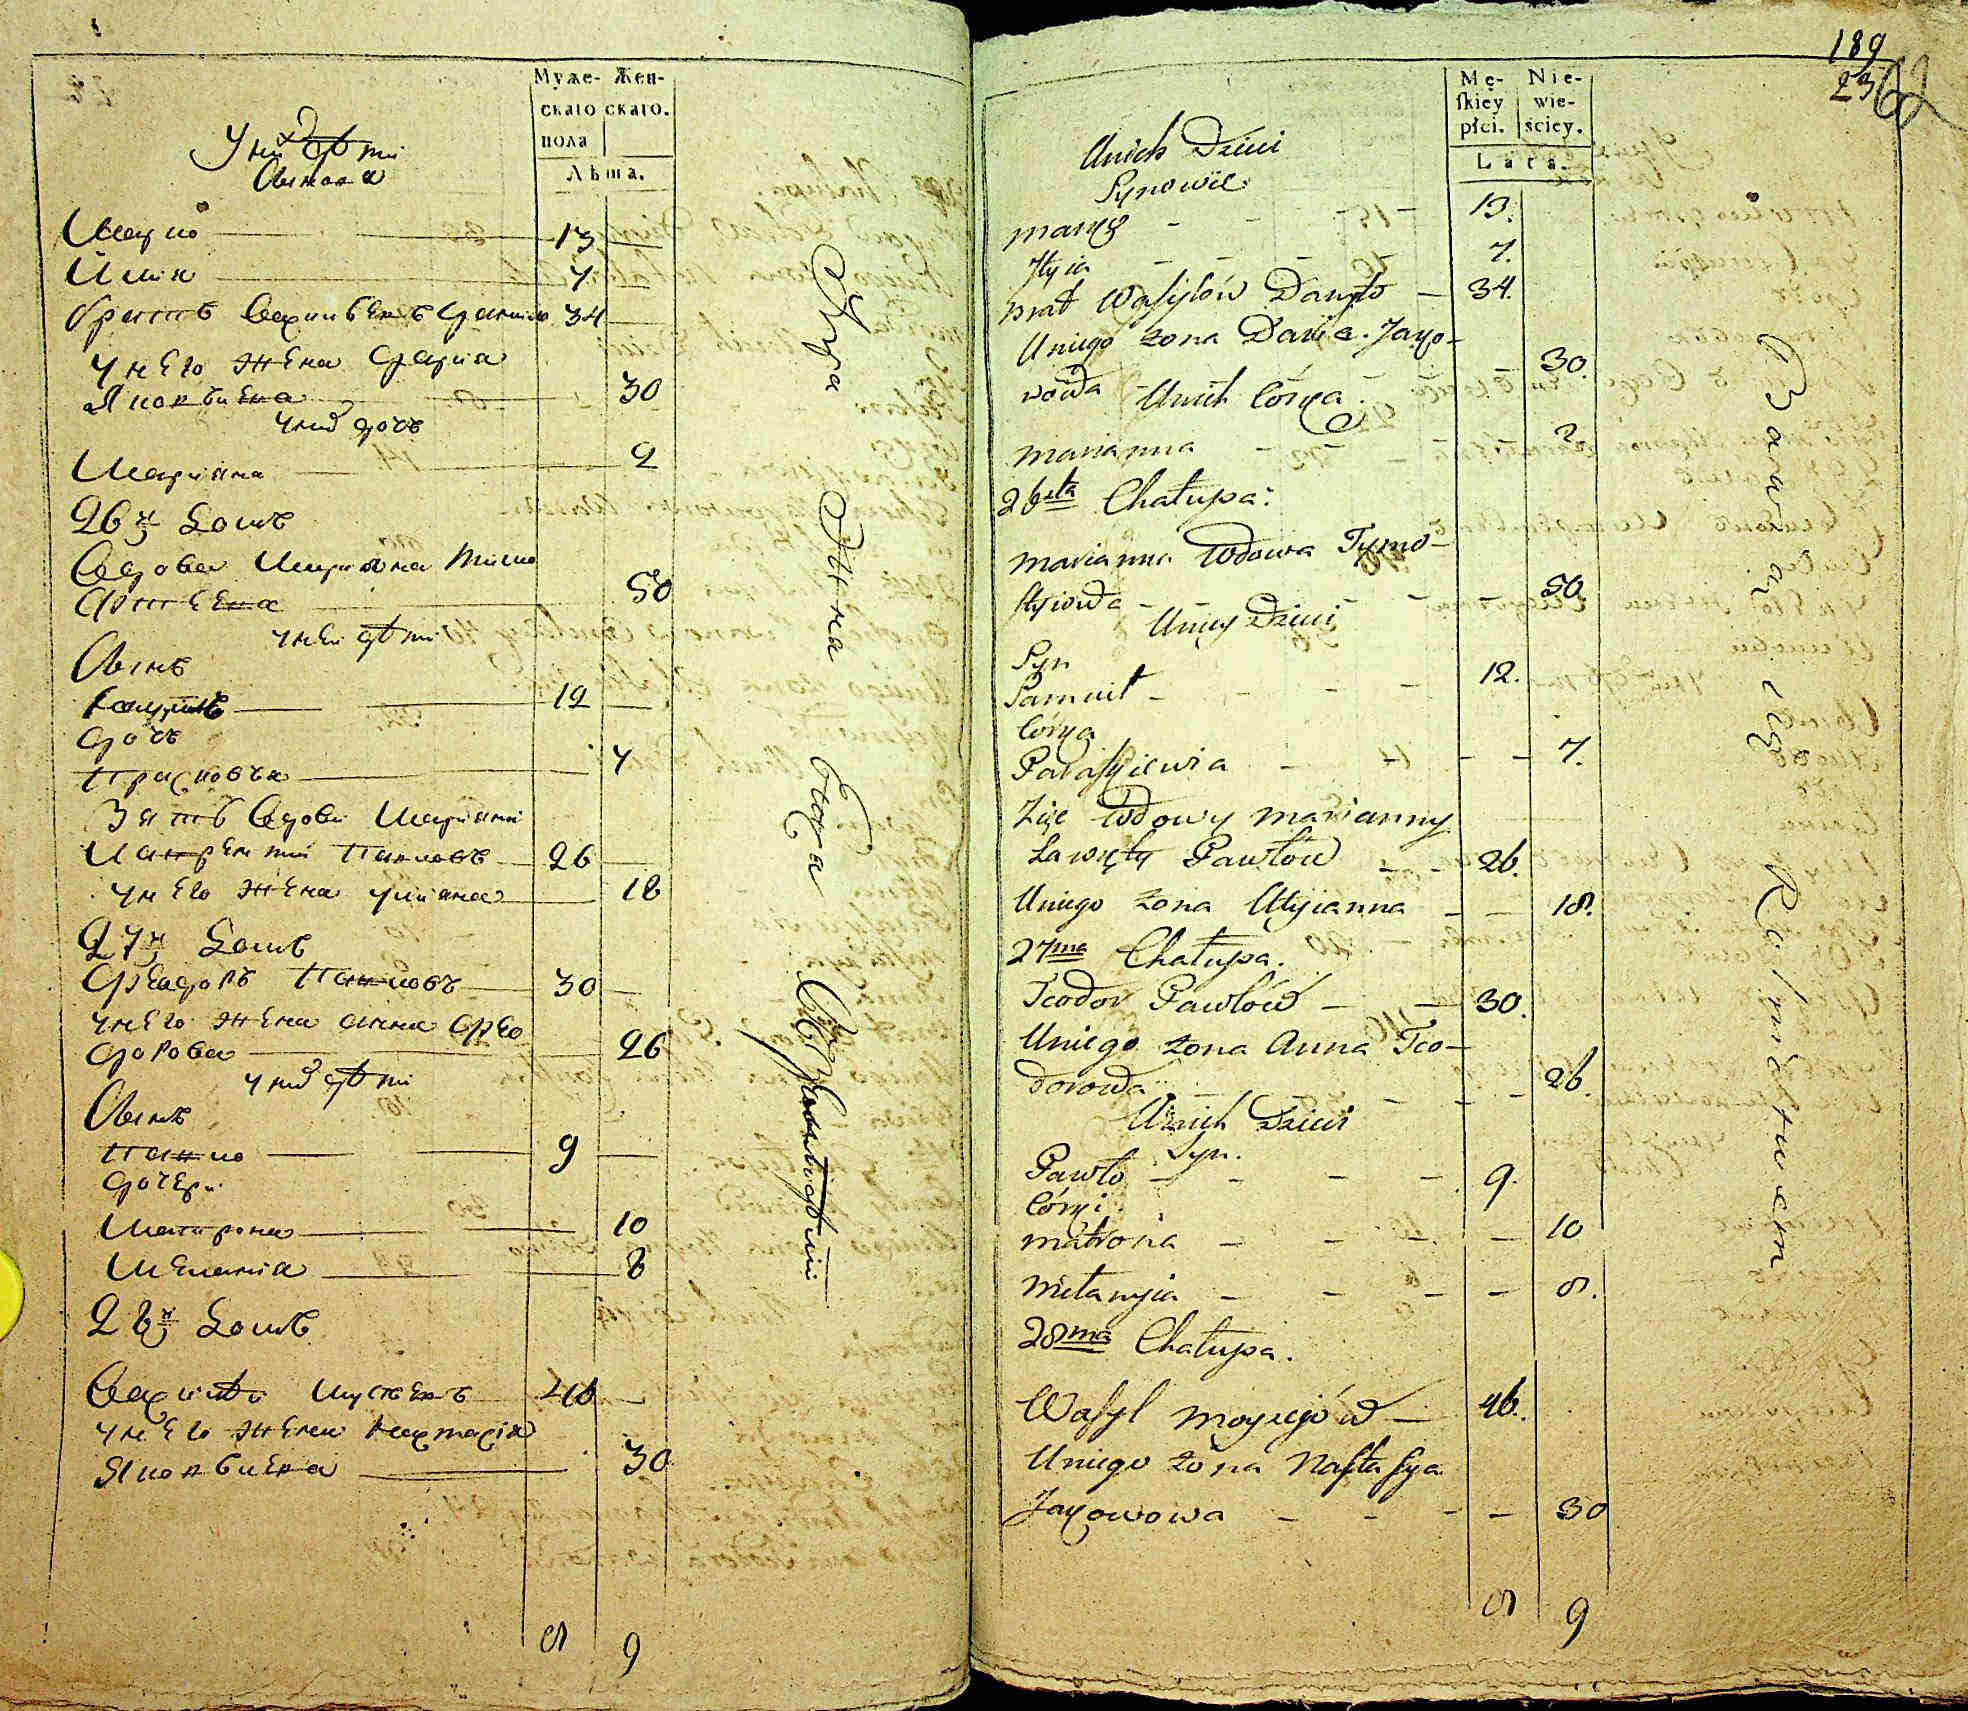 Муже- Жен-
скаго скаго.
пола
Лѣта.
У них дѣти
Сынова
Марко 13
Илия 7
братъ Василѣевъ Данило 34
у него жена Дария
Яковлѣва 30
у них дочь
Марияна 2
26й Домъ
Вдова Марияна Тимо
фѣева 50
у ней дѣти
Сынъ
12
дочь
Прасковья 7
Зять вдовы Марияны
Лаврентий Павловъ 26
у него жена Улияна 18
27й Домъ
Феодоръ Павловъ 30
у него жена Анна Фео
дорова 26
у них дѣти
Сынъ
Павло 9
дочери
Матрона 10
Мелания 8
28й Домъ
Василѣй Мусѣевъ 46
у него жена Настасия
Яковлѣва 30
8 9
189
23
62
Mę- Nie-
ſkiey wie-
płci. ściey.
Lata.
Unich Dzieci
Synowie
Marko 13.
Iłyia 7.
brat Wasylów Daniło 34.
Uniego żona Daria Jako-
wowa 30.
Unich Córka
Marianna 2
26sta Chałupa:
Marianna Wdowa Tymo-
ſzyiowa 50.
Uniey Dzieci
Syn
Samuił 12.
Córka
Paraſkiewia 7.
Zięć Wdowy Marianny
Ławryty Pawłów 26.
Uniego żona Ulyianna 18.
27ma Chałupa.
Teodor Pawłów 30.
Uniego żona Anna Teo-
dorowa 26.
Unich Dzieci
Syn.
Pawło 9.
Córki
Matrona 10
Mełanyia 8.
28ma Chałupa.
Waſyl Moysejów 46.
Uniego żona Naſtaſya
Jakowowa 30
8 9